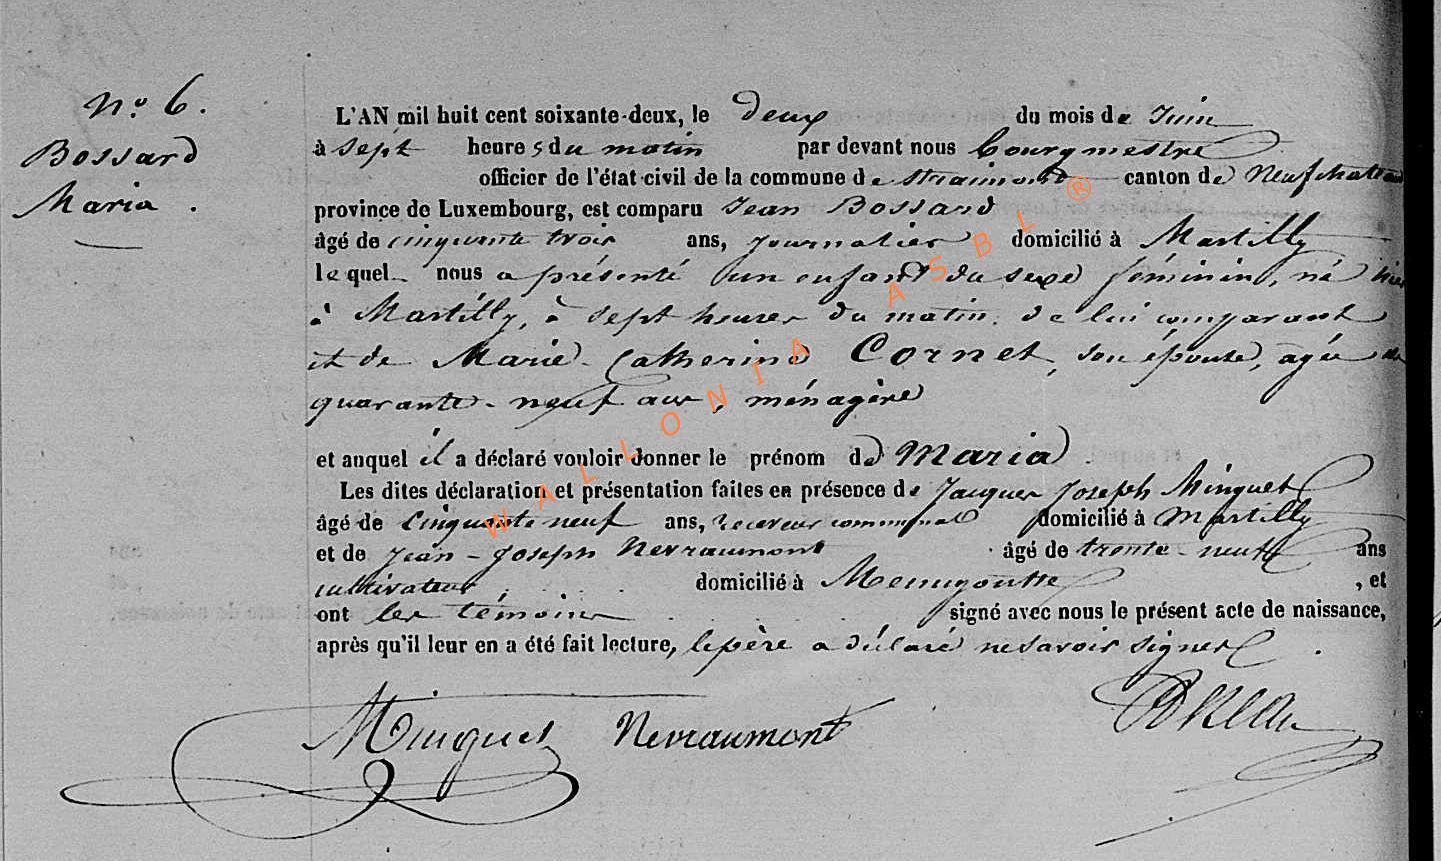 n.º 6.
Bossard
Maria.
L'AN mil huit cent soixante-deux, le deux du mois de Juin
à sept heures du matin par devant nous bourgmestre
officier de l'état-civil de la commune de Straimont canton de Neufchateau
province de Luxembourg, est comparu Jean Bossard
âgé de cinquante trois ans, journalier domicilié à Martilly
lequel nous a présenté un enfant du sexe féminin, né hier
à Martilly, à sept heures du matin. de lui comparant
et de Marie-Catherine Cornet, son épouse, agée de
quarante-neuf ans, ménagère
et auquel il a déclaré vouloir donner le prénom de Maria.
Les dites déclaration et présentation faites en présence de Jacques Joseph Minguet
âgé de cinquante neuf ans, receveur communal domicilié à Martilly
et de Jean-Joseph Nevraumont âgé de trente-neuf ans
cultivateur domicilié à Menugoutte, et
ont les témoins signé avec nous le présent acte de naissance,
après qu'il leur en a été fait lecture, le père a déclaré ne savoir signer.
Minguet Nevraumont
WALLONIA ASBL ®